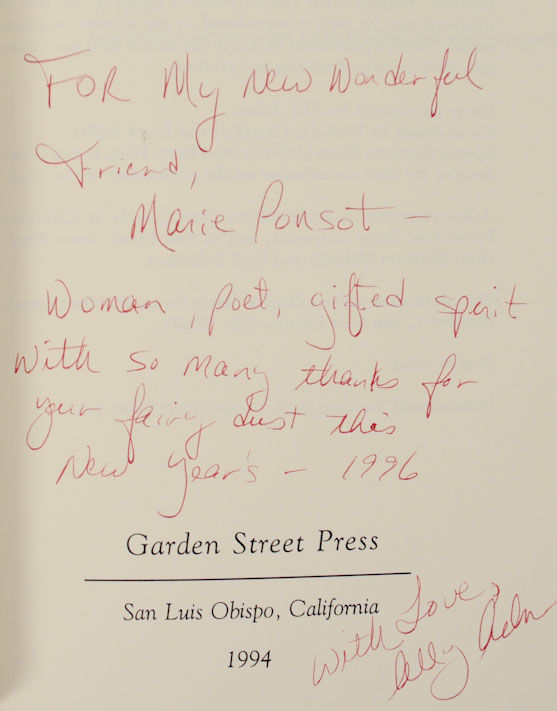 FOR My New Wonderful
Friend,
Marie Ponsot –
Woman, poet, gifted spirit
With so many thanks for
your fairy dust this
New Year's – 1996
Garden Street Press
San Luis Obispo, California
1994
With Love,
Ally